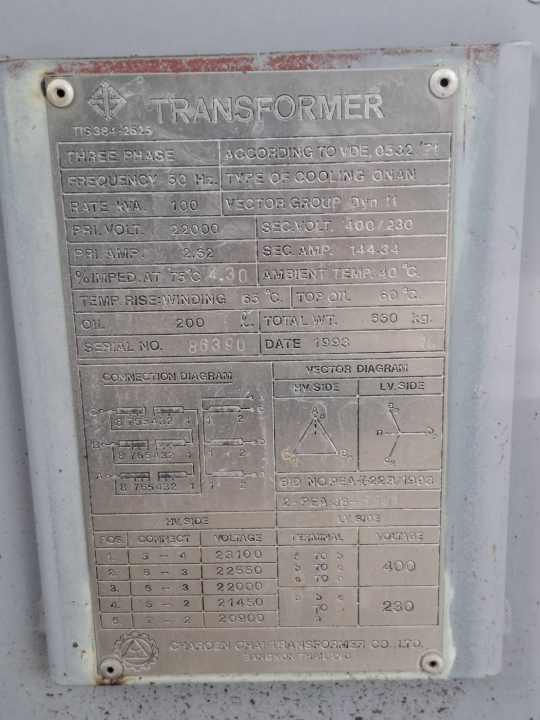 TRANSFORMER
TIS 384-2525
THREE PHASE ACCORDING TO VDE. 0532 '71
FREQUENCY 50 Hz. TYPE OF COOLING ONAN
RATE kVA. 100 VECTOR GROUP Dyn 11
PRI. VOLT. 22000 SEC. VOLT. 400/230
PRI. AMP. 2.62 SEC. AMP. 144.34
% IMPED. AT 75°C 4.30 AMBIENT TEMP. 40 °C.
TEMP. RISE: WINDING 65 °C. TOP OIL 60 °C.
OIL 200 TOTAL WT. 630 kg.
SERIAL NO. 86390 DATE 1993
CONNECTION DIAGRAM VECTOR DIAGRAM
HV. SIDE LV. SIDE
C 8 765432 1 1 2 c
B 8 765432 1 1 2 b
A 8 765432 1 1 2 a
BID NO. PEA
HV. SIDE LV. SIDE
POS. CONNECT VOLTAGE TERMINAL VOLTAGE
1. 5 - 4 23100
2. 5 - 3 22550 400
3. 6 - 3 22000
4. 6 - 2 21450 230
5. 7 - 2 20900
CHAROEN CHAI TRANSFORMER CO., LTD.
BANGKOK THAILAND